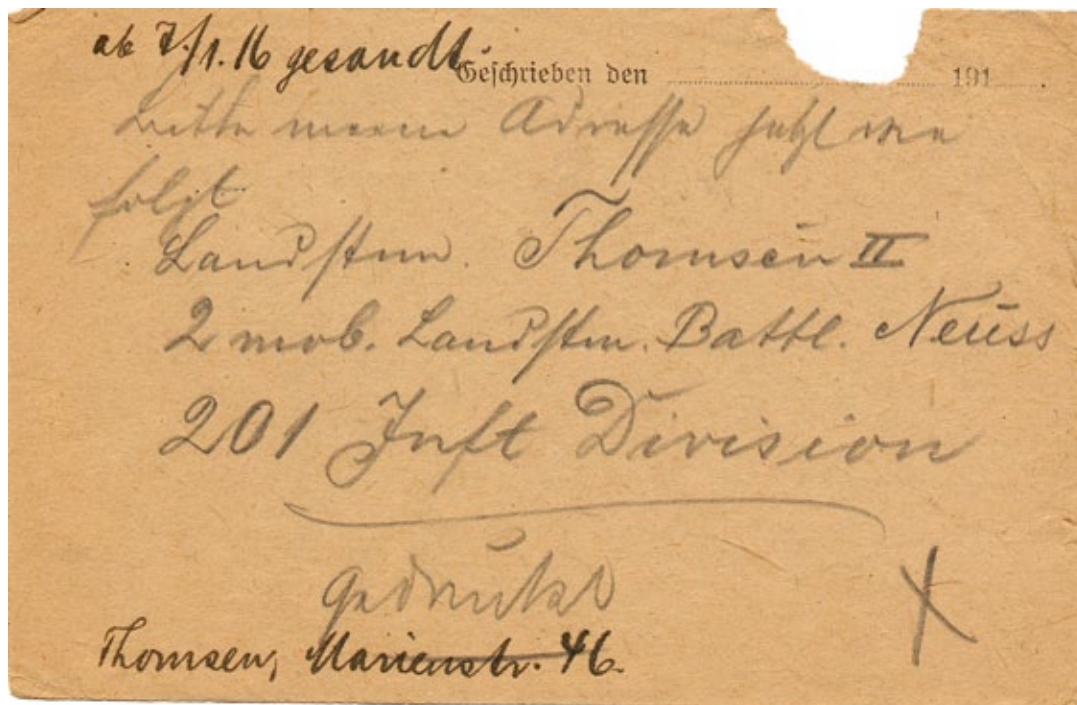 ab 7./1.16 gesandt.
Geschrieben den 191
bitte meine Adresse jetzt wie
folgt
Landstm. Thomsen II
2 mob. Landstm. Battl. Neuss
201 Inft Division
Thomsen, Marienstr. 46.